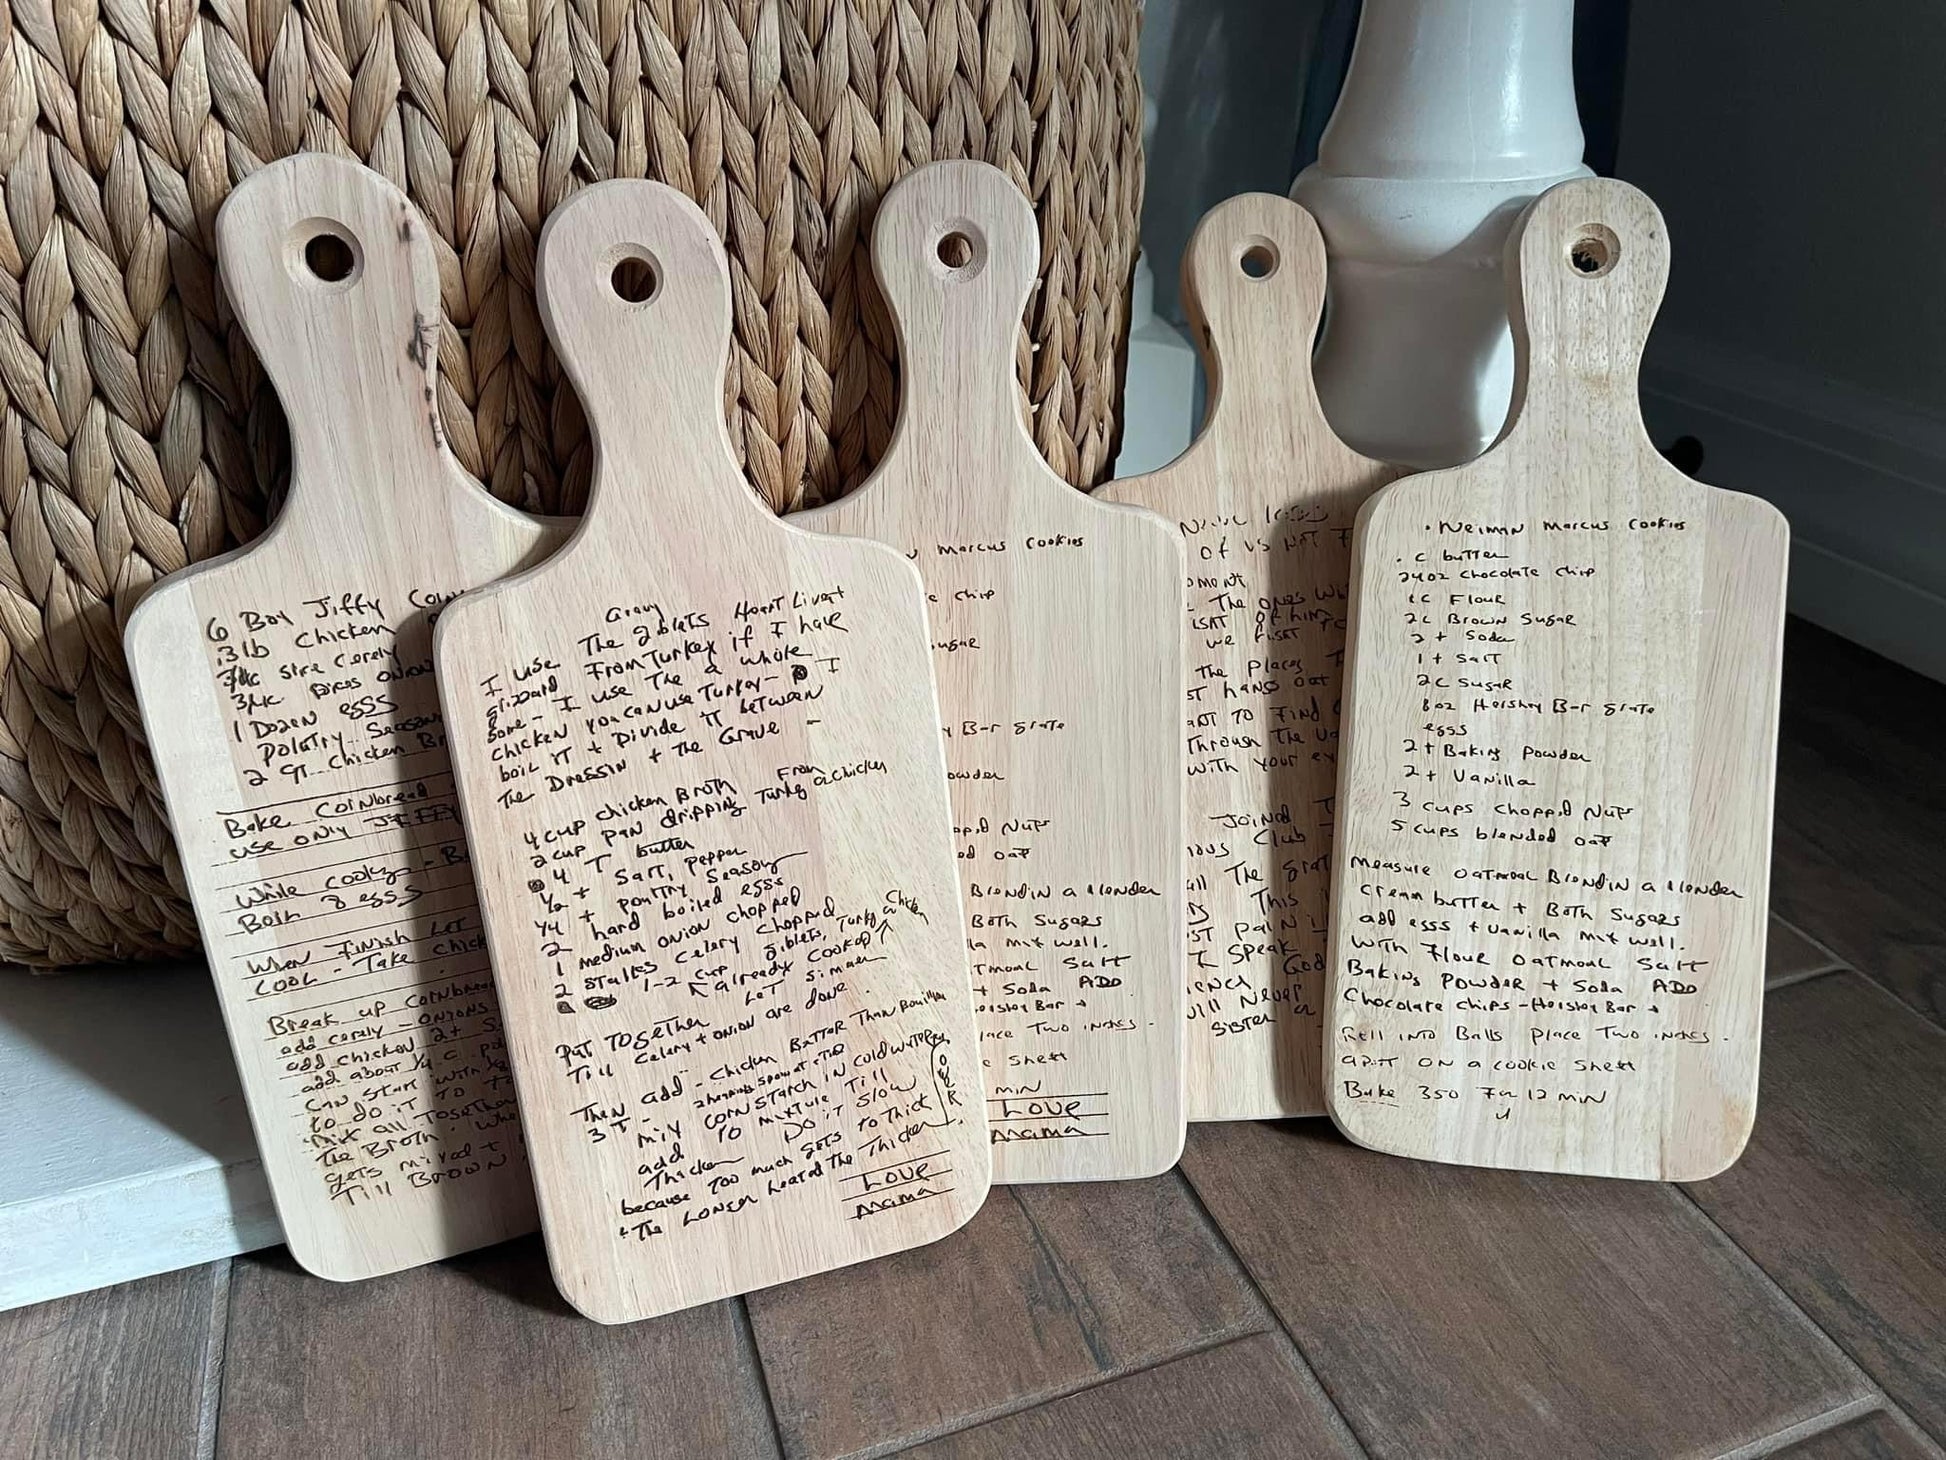 6 Box Jiffy Corn
3 lb Chicken
3/4c size Cerely
3/4c Dices onion
1 Dozen eggs
Poletry Seasoni
2 qt Chicken Br
Bake Cornbread
use only Jiffy
While cookg - B
Boil 8 eggs
When Finish Let
Cool - Take chick
Break up cornbread
add cerely - onions
add chicken 2+ S
add about 1/4 c pol
can start with
to do it to
mix all together
The Broth. Whe
gets mixed +
Till Brown
Gravy
I use The giblets Heart Liver
gizzard From Turkey if I have
Some - I use The a whole
chicken you can use Turkey - I
boil it + Divide it between
The Dressin + The Grave -
4 cup chicken Broth From
2 cup pan dripping Turkey or chicken
4 T butter
1/2 + Salt, pepper
1/4 + poultry seasong
2 hard boiled eggs
1 medium onion chopped
2 stalkes celery chopped
1-2 cup giblets, Turkey or chicken
already cooked
Put Together Let Simaer
Till Celery + onion are done.
Then add - chicken Batter Than Bouillon
3 T - 2 heaping spoon at
mix corn starch in cold water
add To mixture Till
Thicken Do it slow
because Too much gets To Thick
+ The Longer heated The Thicker.
Love
mama
Marcus Cookies
c chip
sugar
y Bar grate
owder
pped Nuts
ed oat
Blendin a blender
Both Sugars
la mix well.
Tmoal Salt
+ Soda ADD
ershey Bar +
lace Two inches.
e Sheet
min
Love
mama
of us not F
oment
The ones wh
isnt of him
we first
the places T
st hangs out
ant To Find
Through The
with your ey
Joined T
ious Club
all The grat
This i
st pain i
I speak
ience God
will Never
Sister
. Neiman Marcus Cookies
. c butter
24oz Chocolate chip
4c Flour
2c Brown Sugar
2 + Soda
1 + Salt
2c Sugar
8oz Hershey Bar grate
eggs
2 + Baking Powder
2 + Vanilla
3 cups chopped Nuts
5 cups blended oat
Measure oatmoal Blendin a blender
Cream butter + Both Sugars
add eggs + vanilla mix well.
With Flour oatmoal Salt
Baking Powder + Soda ADD
Chocolate chips - Hershey Bar +
Roll into Balls Place Two inches.
apart on a cookie Sheet
Bake 350 For 12 min